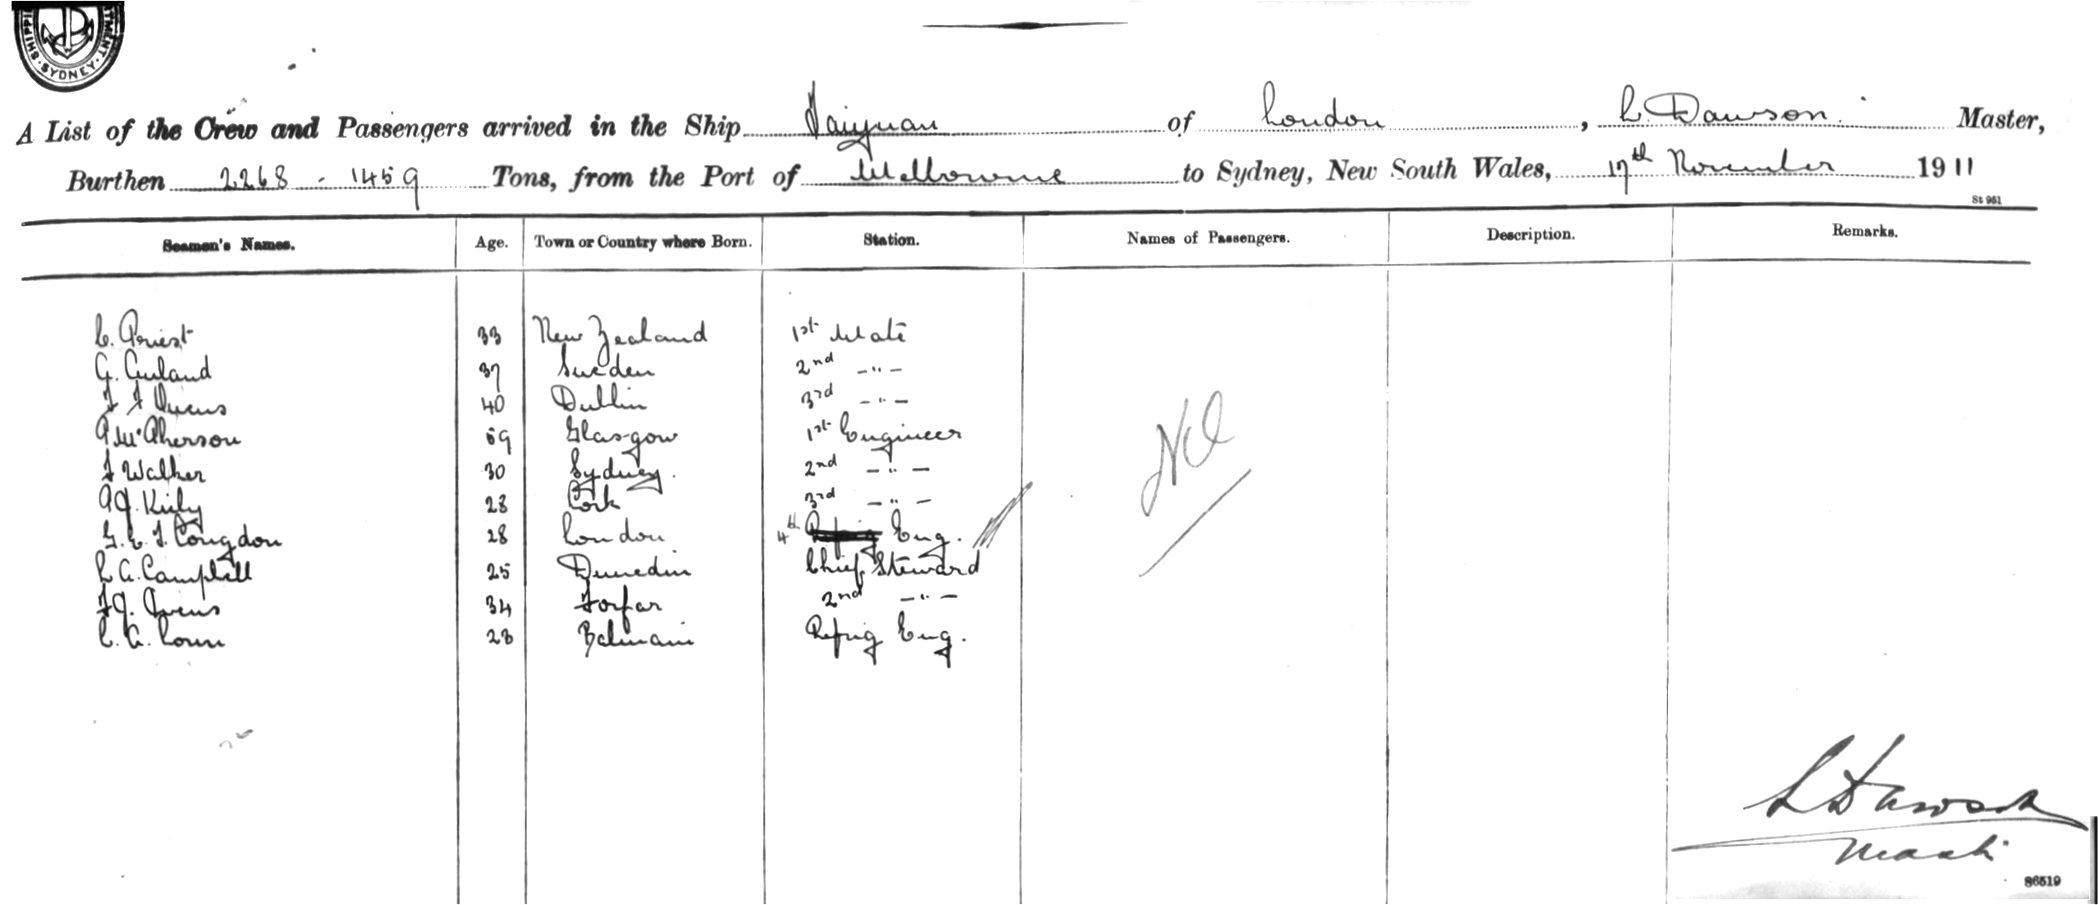 SHIPPI TMENT. SYDNEY.
A List of the Crew and Passengers arrived in the Ship Taiyuan of London, L. Dawson. Master,
Burthen 2268 - 1459 Tons, from the Port of Melbourne to Sydney, New South Wales, 17th November 1911
St 951
Seamen's Names. Age. Town or Country where Born. Station. Names of Passengers. Description. Remarks.
C. Priest 33 New Zealand 1st Mate
G. 37 Sweden 2nd -"-
40 Dublin 3rd -"-
A McPherson 59 Glasgow 1st Engineer
J Walker 30 Sydney. 2nd -"-
A J. Kiely 28 Cork 3rd -"-
G. E. J. Congdon 28 London 4th Refrig Eng.
L A. Campbell 25 Dunedin Chief Steward
J J. Owens 34 Forfar 2nd -"-
C. A. 23 Balmain Refrig Eng.
Nil
L Dawson
Master
86519